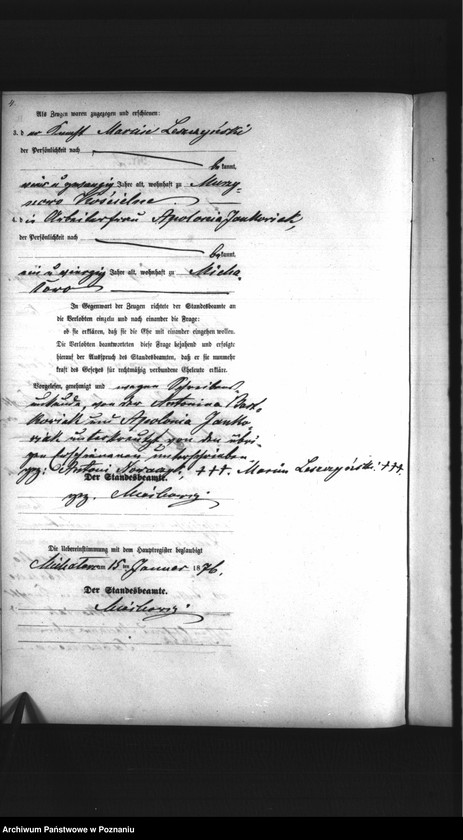 4.
Als Zeugen waren zugezogen und erschienen:
3. der Knecht Marcin Leszczyński
der Persönlichkeit nach
bekannt,
vier u zwanzig Jahre alt, wohnhaft zu Murzy-
nowo Kościelne
4. die Arbeiterfrau Apolonia Jankowiak,
der Persönlichkeit nach
bekannt,
ein u vierzig Jahre alt, wohnhaft zu Micha-
lowo
In Gegenwart der Zeugen richtete der Standesbeamte an
die Verlobten einzeln und nach einander die Frage:
ob sie erklären, daß sie die Ehe mit einander eingehen wollen.
Die Verlobten beantworteten diese Frage bejahend und erfolgte
hierauf der Ausspruch des Standesbeamten, daß er sie nunmehr
kraft des Gesetzes für rechtmäßig verbundene Eheleute erkläre.
Vorgelesen, genehmigt und wegen Schreibens
unkunde, von der Antonina
und Apolonia Janko
wiak unterkreuzt von den übri-
gen Erschienenen unterschrieben
gez: Antoni +++. Marcin Leszczyński +++
Der Standesbeamte.
gez.
Die Uebereinstimmung mit dem Hauptregister beglaubigt
am 15 ten Januar 1876.
Der Standesbeamte.
Archiwum Państwowe w Poznaniu